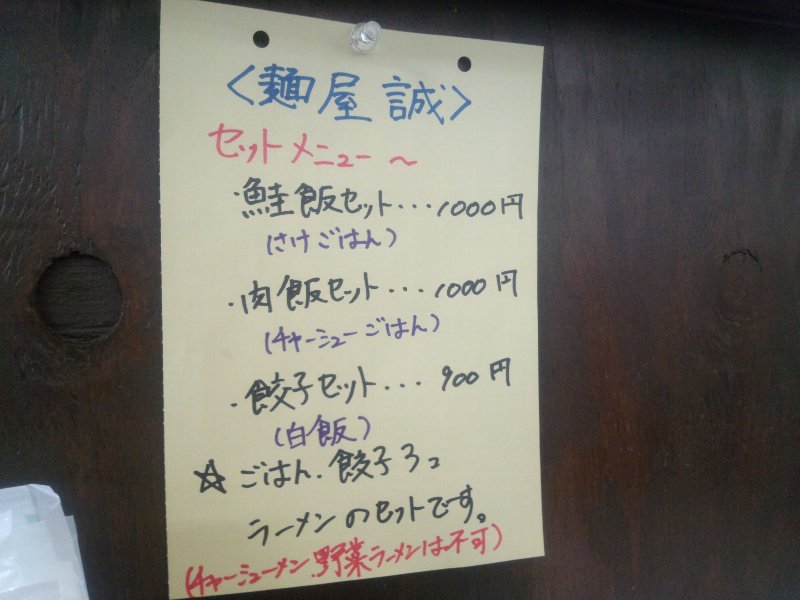 <麺屋 誠>
セットメニュー～
・鮭飯セット・・・1000円
(さけごはん)
・肉飯セット・・・1000円
(チャーシューごはん)
・餃子セット・・・900円
(白飯)
☆ごはん.餃子3コ
ラーメンのセットです。
(チャーシューメン.野菜ラーメンは不可)